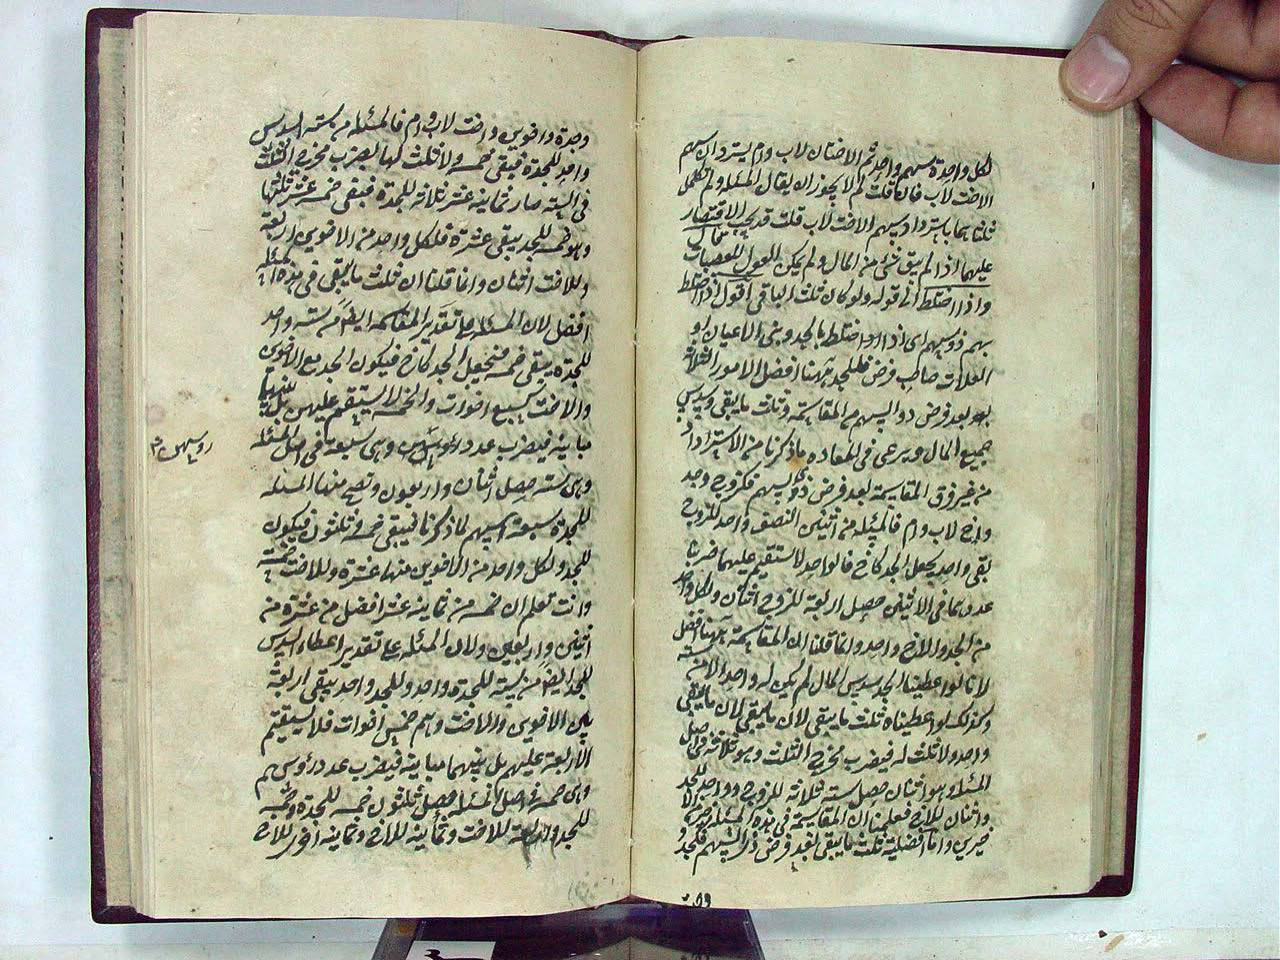 لكل واحدة سهم واحد ثم الاختان لاب وام يستردان سهم
الاخت لاب فان قلت لم لا يجوز ان يقال المسئلة ولم تكمل
ثلثاهما باسترداد سهم الاخت لاب قلت قد يجب الاقتصار
عليهما اذا لم يبق شئ من المال ولم يكن العول للعصبات قال
واذا اختلط الى قوله ولو كان ثلث الباقى اقول اذا اختلط
بهم ذو سهم اى اذا اختلط بالجد وبنى الاعيان او
العلات صاحب فرض فللجد ههنا افضل الامور الثلثة
بعد فرض ذوى السهم المقاسمة وثلث ما يبقى وسدس
جميع المال ويرعى فى المعاده ما ذكرنا من الاسترداد
من غير فرق المقاسمة بعد فرض ذى سهم كزوج وجد
واخ لاب وام فالمسئلة من اثنين النصف واحد للزوج
بقى واحد يجعل الجد كاخ فالواحد لا يستقيم عليهما ضربنا
عددهما فى الاثنين حصل اربعة للزوج اثنان ولكل واحد
من الجد والاخ واحد وانما قلنا ان المقاسمة ههنا افضل
لانا لو اعطينا الجد سدس المال لم يكن له واحد الا من ستة
وكذلك لو اعطيناه ثلث ما يبقى لان ما يبقى
واحد ولا ثلث له فيضرب مخرج الثلث وهو ثلاثة فى اصل
المسئلة وهو اثنان حصل ستة ثلاثة للزوج وواحد للجد
واثنان للاخ فعلمنا ان المقاسمة فى هذه المسئلة
خير واما افضلية ثلث ما يبقى بعد فرض ذى السهم فكجد
وجدة واخوين واخت لاب وام فالمسئلة من ستة السدس
واحد للجدة فبقى خمسة ولا ثلث لها يضرب مخرج الثلث
فى الستة صار ثمانية عشر ثلاثة للجدة فبقى خمسة عشر ثلثها
وهو خمسة للجد يبقى عشرة فلكل واحد من الاخوين اربعة
وللاخت اثنان وانما قلنا ان ثلث ما يبقى فى هذه المسئلة
افضل لان المسئلة على تقدير المقاسمة ايضا من ستة واحد
للجدة يبقى خمسة فنجعل الجد كاخ فيكون الجد مع الاخوين
والاخت كسبع اخوات والخمسة لا يستقيم عليهن بل بينهما
مباينة فيضرب عدد رؤسهن وهى سبعة فى اصل المسئلة
وهى ستة حصل اثنان واربعون وتصح منها المسئلة
للجدة سبعة اسهم لما ذكرنا فيبقى خمسة وثلثون فيكون
للجد ولكل واحد من الاخوين منها عشرة وللاخت خمسة
وانت تعلم ان خمسة من ثمانية عشر افضل من عشرة من
اثنين واربعين ولان المسئلة على تقدير اعطاء السدس
للجد ايضا من ستة للجدة واحد وللجد واحد يبقى اربعة
بين الاخوين والاخت وهم خمس اخوات فلا يستقيم
الاربعة عليهم بل بينهما مباينة فيضرب عدد رؤسهم
وهى خمسة فى اصل المسئلة حصل ثلثون خمسة للجدة وخمسة
للجد واربعة للاخت وثمانية للاخ وثمانية اخرى للاخ